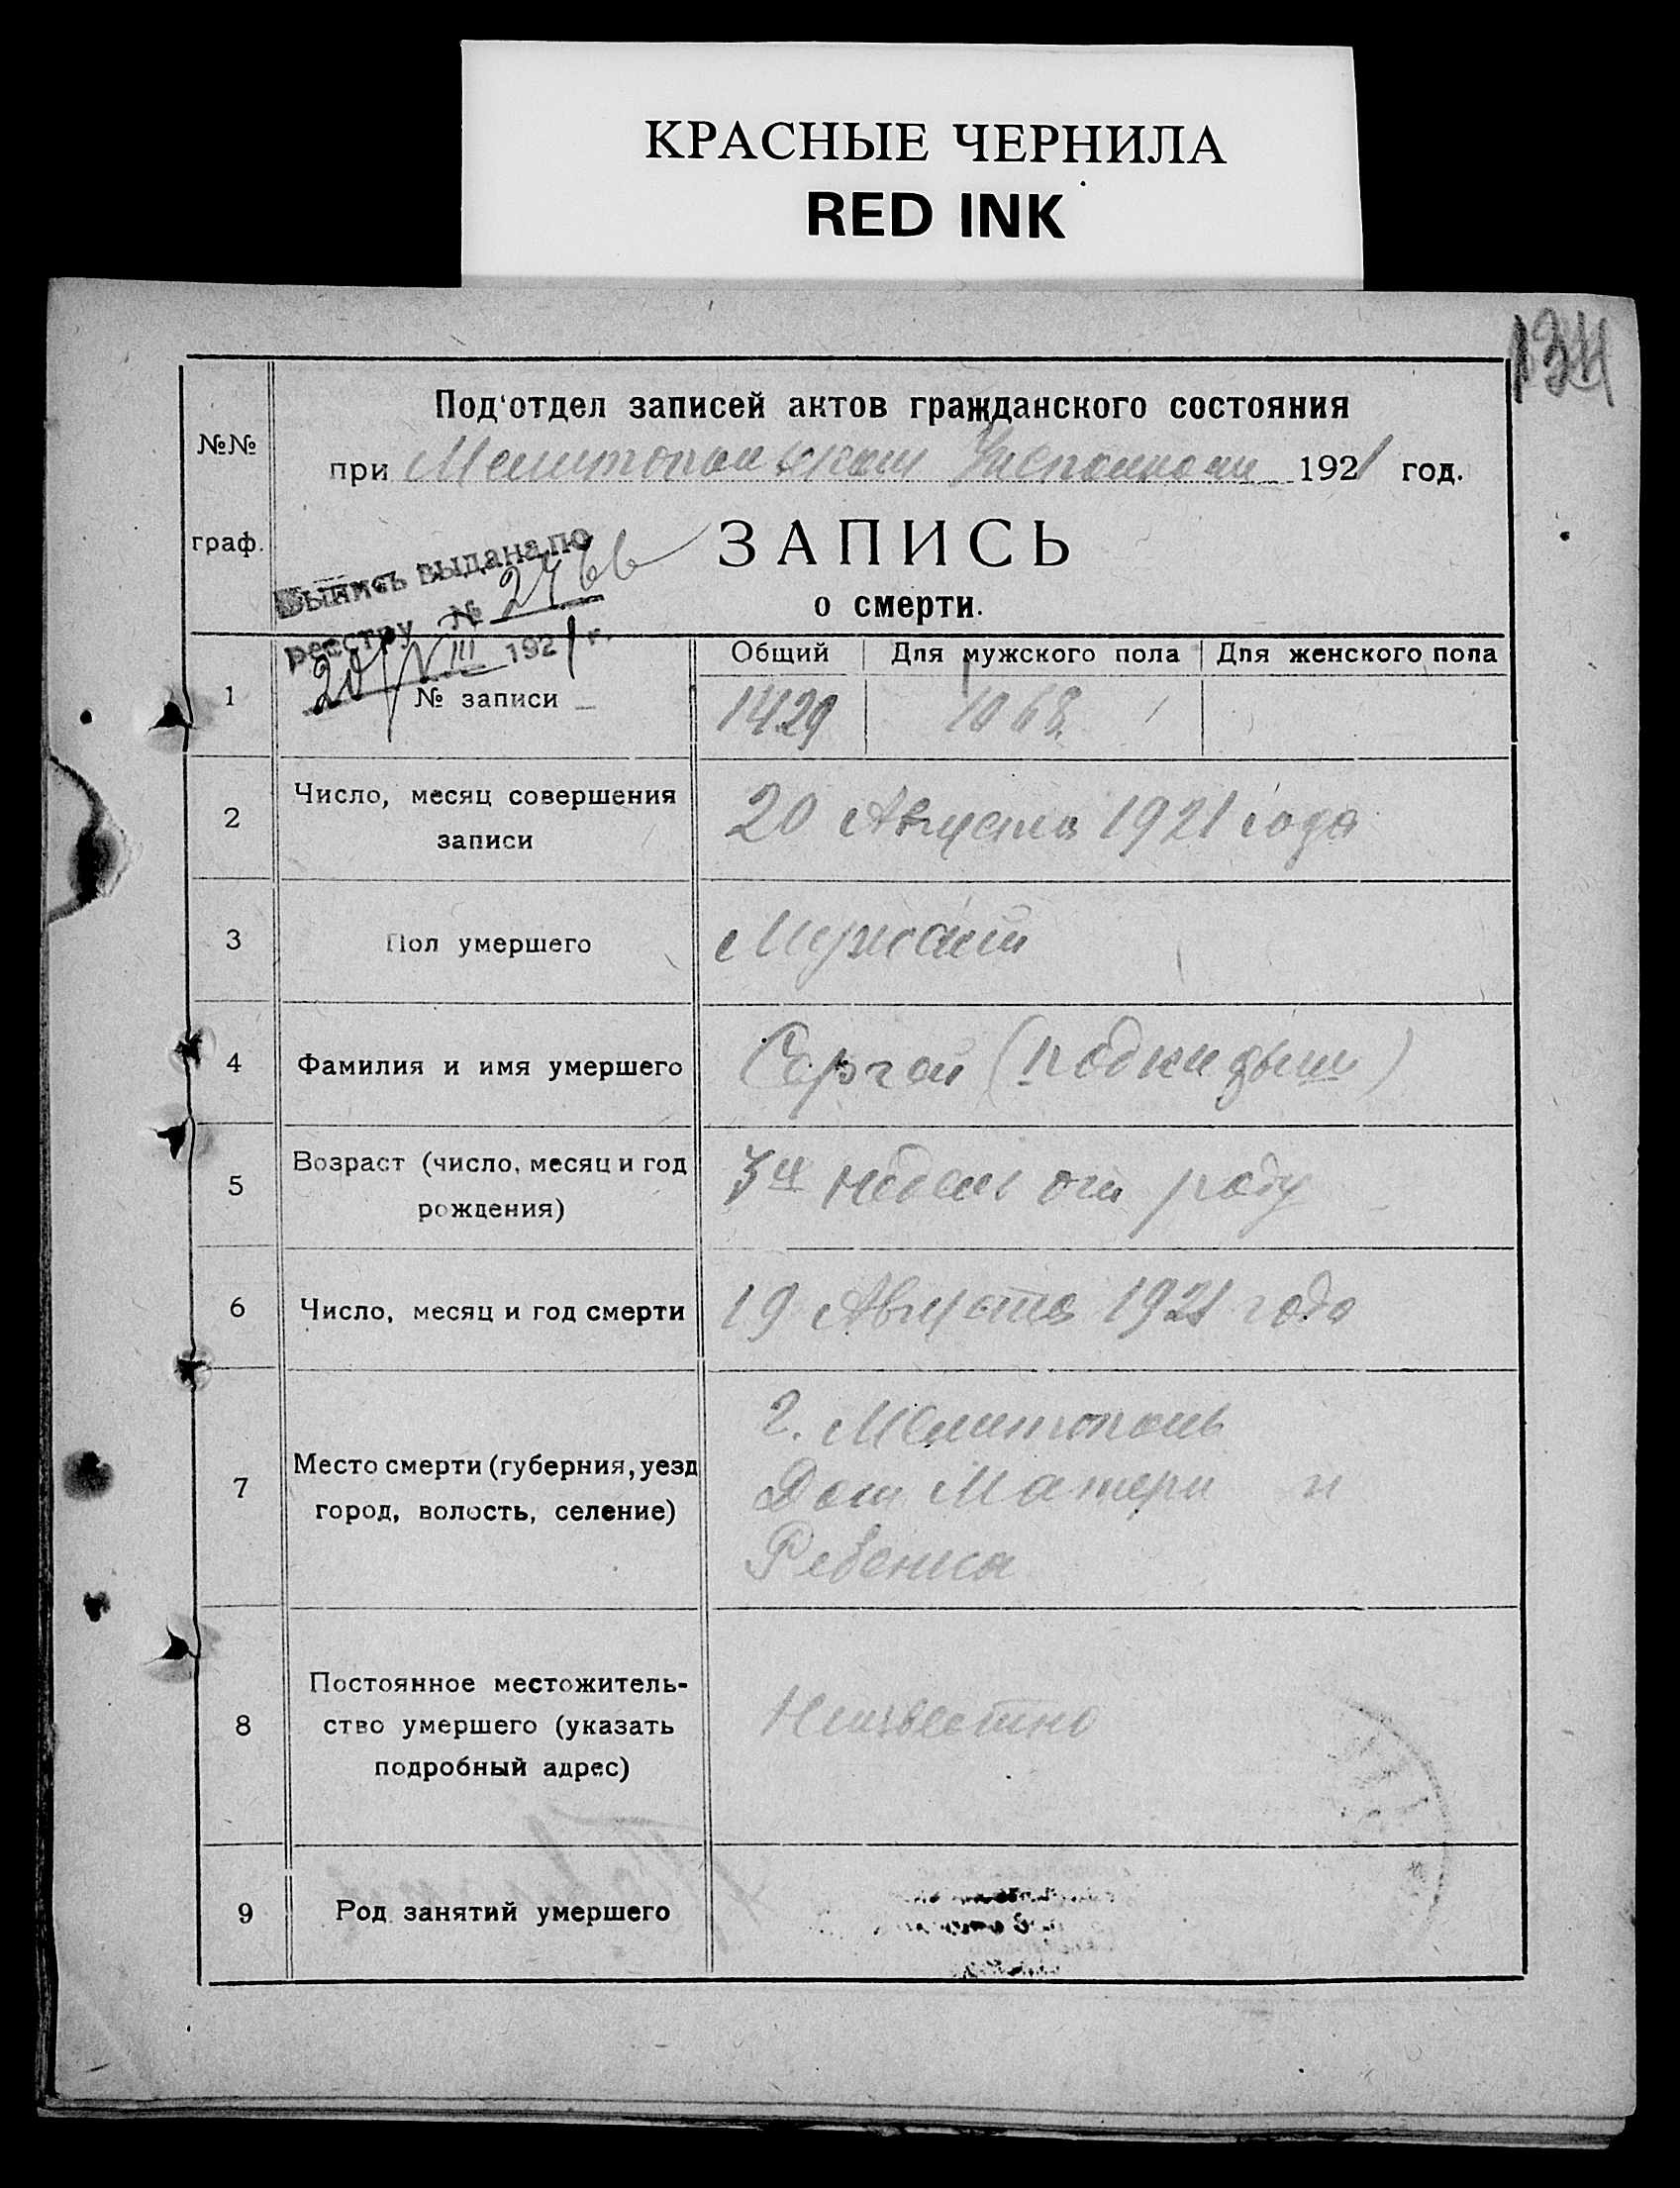 КРАСНЫЕ ЧЕРНИЛА
RED INK
134
Под'отдел записей актов гражданского состояния
№№
при Мелитопольском Уисполкоме 1921 год.
граф.
ЗАПИСЬ
о смерти.
Выпись выдана по
реестру № 2766
20/VIII 1921 г.
Общий Для мужского пола Для женского пола
1 № записи 1429 1068
2 Число, месяц совершения записи 20 Августа 1921 года
3 Пол умершего Мужской
4 Фамилия и имя умершего Сергей (подкидыш)
5 Возраст (число, месяц и год рождения) 3х недель от роду
6 Число, месяц и год смерти 19 Августа 1921 года
7 Место смерти (губерния, уезд город, волость, селение) г. Мелитополь
Дом Матери и
Ребенка
8 Постоянное местожитель-
ство умершего (указать
подробный адрес) Неизвестно
9 Род занятий умершего